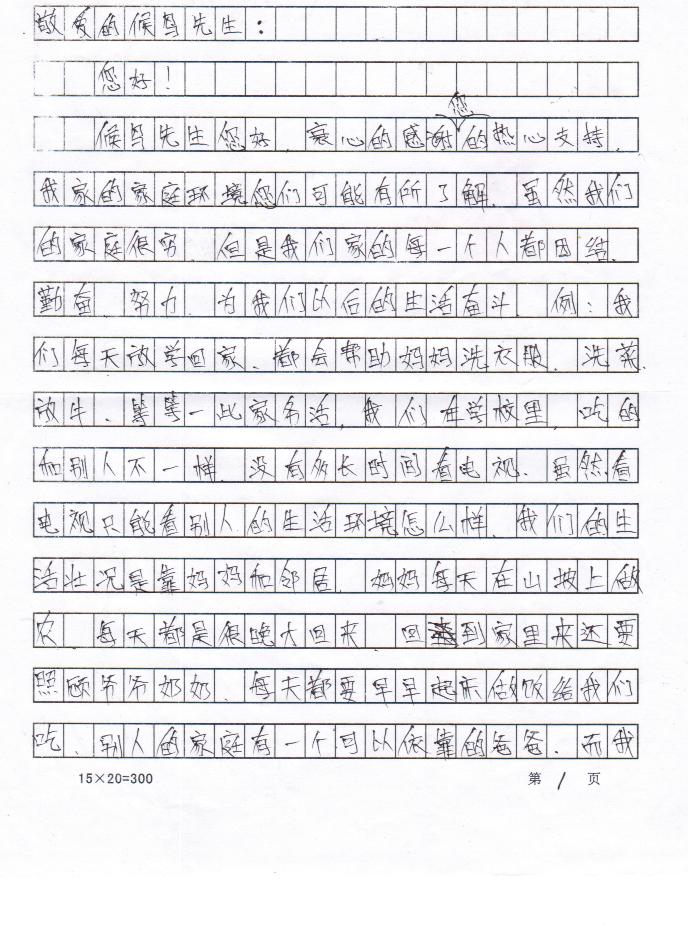 敬爱的候鸟先生：
您好！
候鸟先生您好，衷心的感谢您的热心支持，
我家的家庭环境您们可能有所了解，虽然我们
的家庭很穷，但是我们家的每一个人都团结、
勤奋、努力、为我们以后的生活奋斗，例：我
们每天放学回家、都会帮助妈妈洗衣服、洗菜、
放牛、等等一些家务活，我们在学校里，吃的
和别人不一样，没有多长时间看电视、虽然看
电视只能看别人的生活环境怎么样，我们的生
活壮况是靠妈妈和邻居，妈妈每天在山坡上做
农，每天都是很晚才回来，回到家里来还要
照顾爷爷奶奶、每天都要早早起床做饭给我们
吃、别人的家庭有一个可以依靠的爸爸、而我
15×20=300
第 1 页